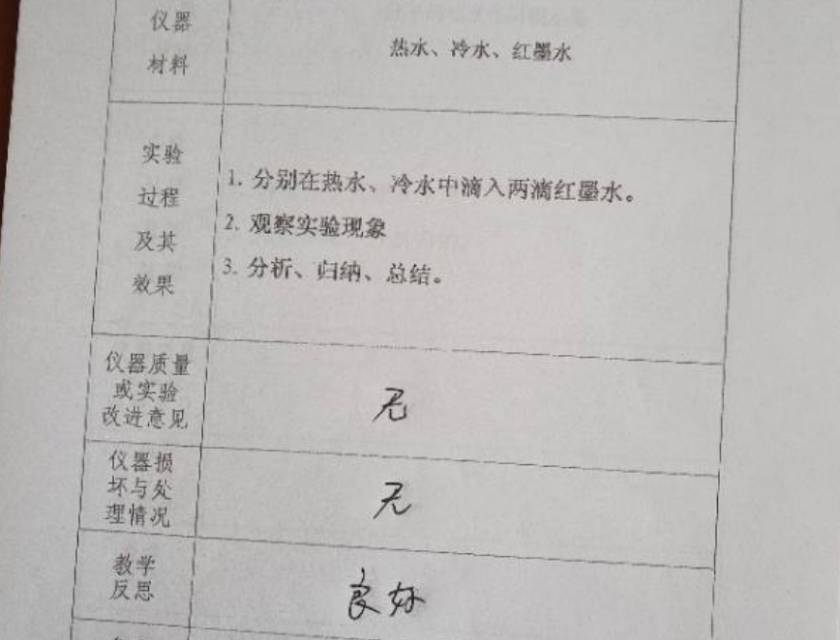 仪器
材料
热水、冷水、红墨水
实验
过程
及其
效果
1. 分别在热水、冷水中滴入两滴红墨水。
2. 观察实验现象
3. 分析、归纳、总结。
仪器质量
或实验
改进意见
无
仪器损
坏与处
理情况
无
教学
反思
良好